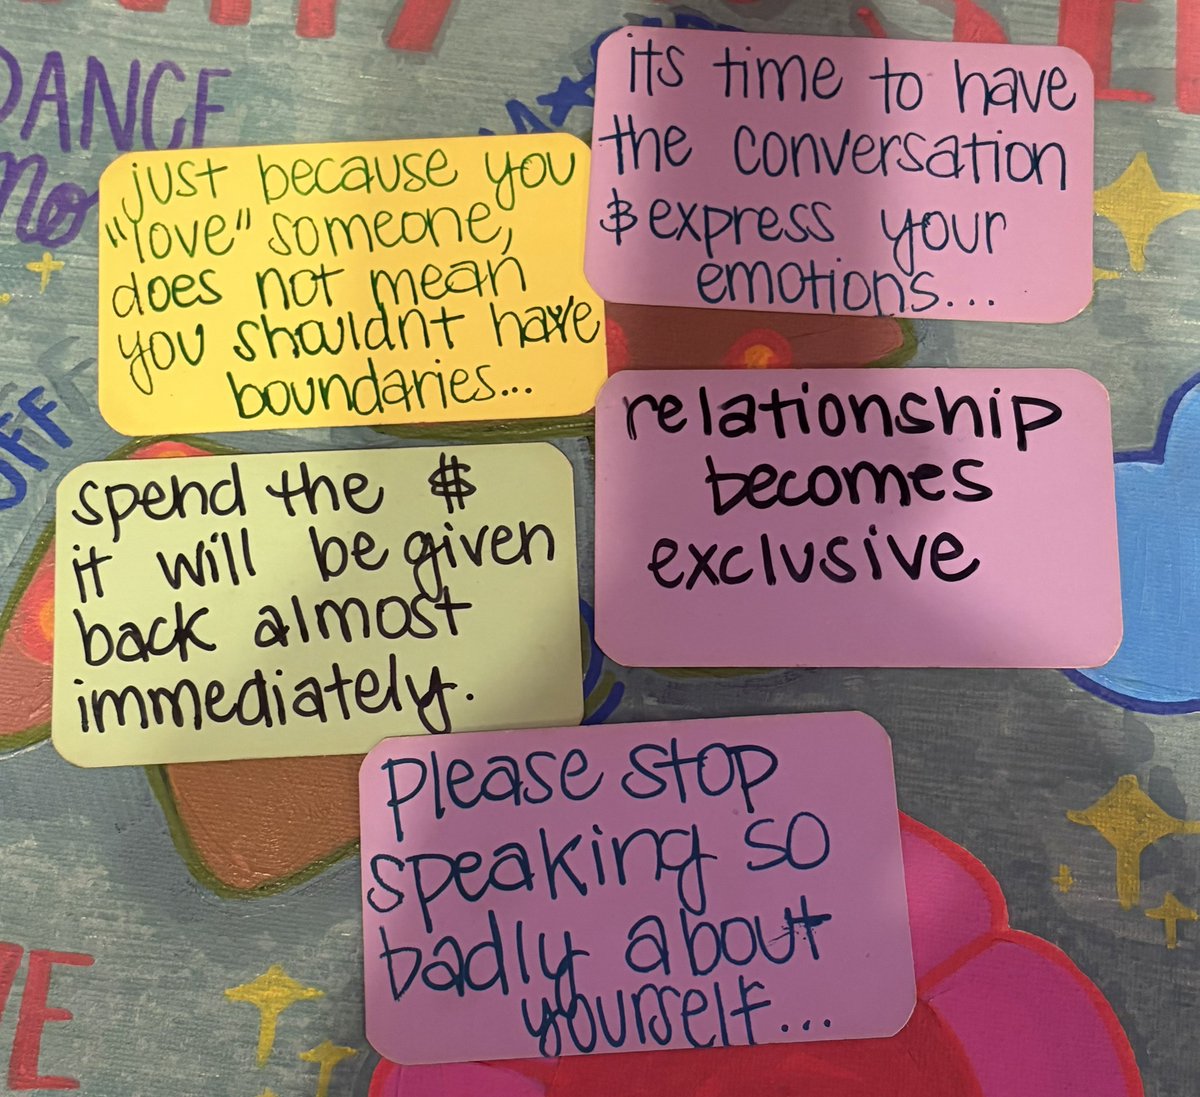 DANCE
no
OFF
just because you
"love" someone,
does not mean
you shouldnt have
boundaries...
its time to have
the conversation
& express your
emotions...
spend the $
it will be given
back almost
immediately.
relationship
becomes
exclusive
please stop
speaking so
badly about
yourself...